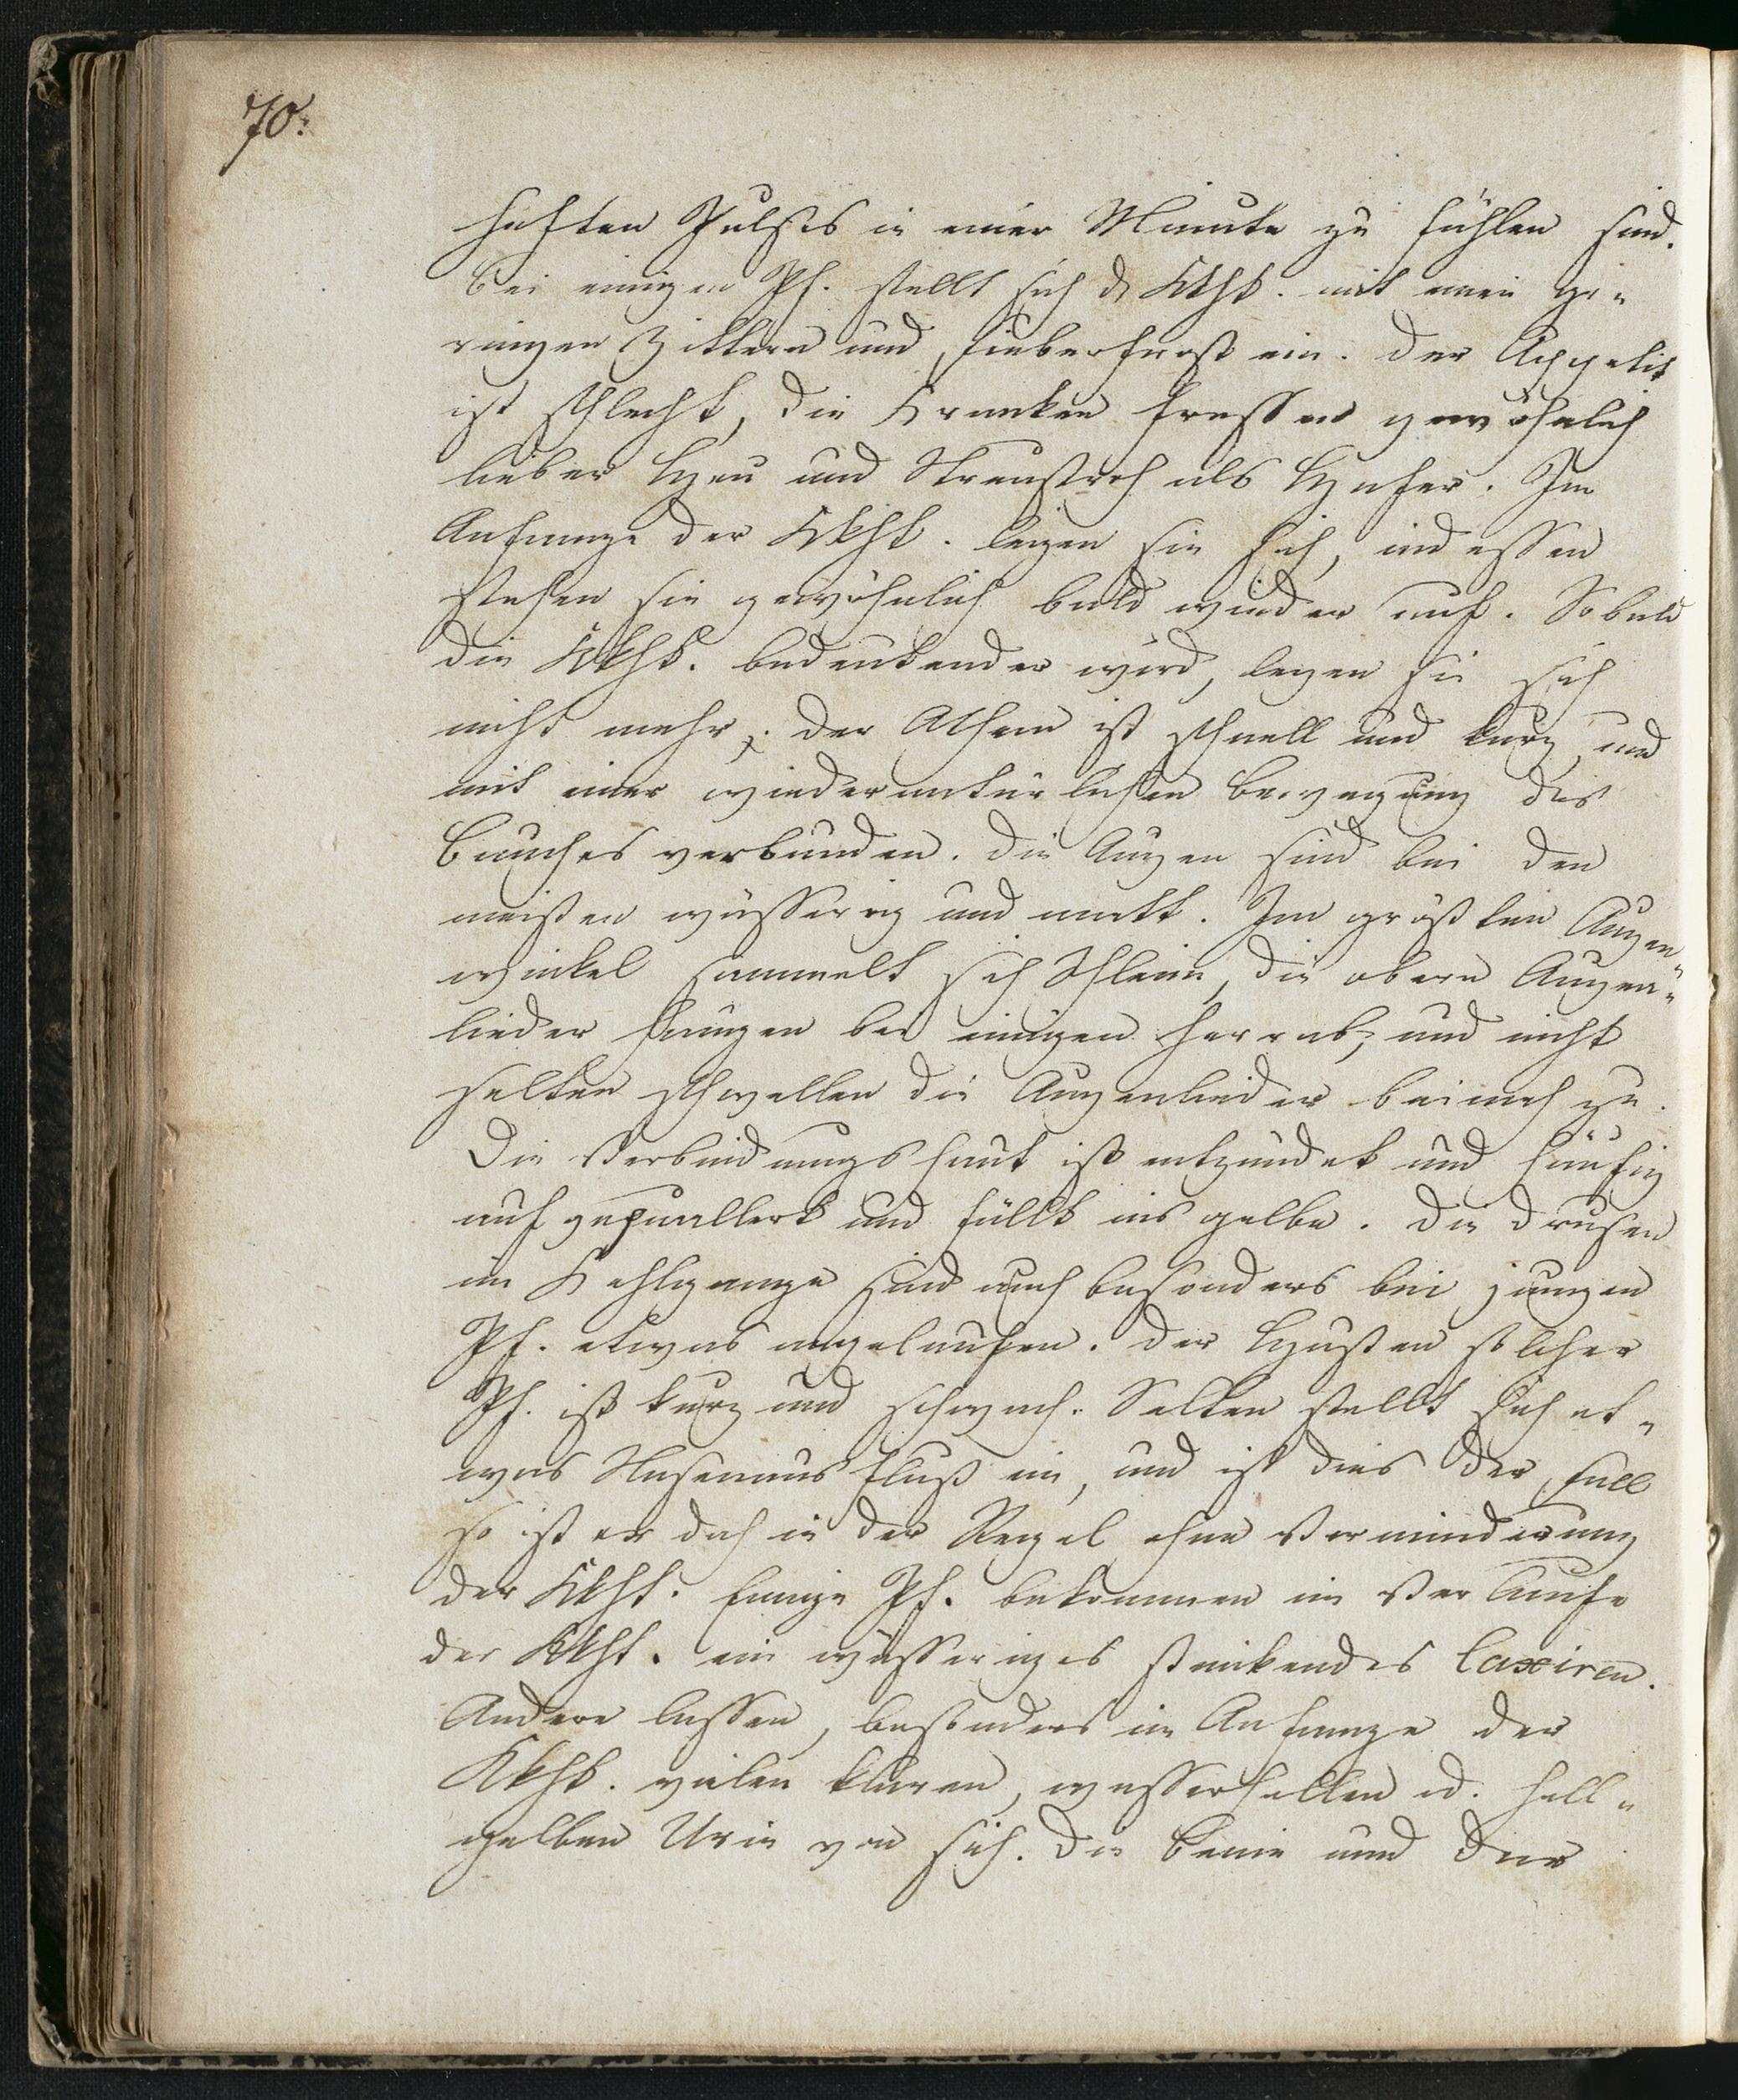 70.
haften Pulses in einer Minute zu fühlen sind.
Bei einigen Pf. stellt sich d Kkht. mit einen ge-
ringen Zittern und Fieberfrost ein. Der Appetit
ist schlecht, die Kranken fressen gewöhnlich
lieber Heu und Streustroh als Hafer. Im
Anfange der Kkht. legen sie sich, indessen
stehen sie gewöhnlich bald wieder auf. Sobald
die Kkht. bedeutender wird, legen sie sich
nicht mehr. Der Athem ist schnell und kurz, und
mit einer wiedernatürlichen Bewegung des
Bauches verbunden. Die Augen sind bei den
meisten wässerig und matt. Im größten Augen-
winkel sammelt sich Schleim, die obern Augen-
lieder hängen bei einigen herrab, und nicht
selten schwellen die Augenlieder beinah zu.
Die Verbindungshaut ist entzündet und häufig
auf und fällt ins gelbe. Die Drusen
im Kehlgange sind auch besonders bei jungen
Pf. etwas angelaufen. Der Husten solcher
Pf. ist kurz und schwach. Selten stellt sich et-
was Nasenausfluß ein, und ist dies der Fall
so ist er doch in der Regel ohne Verminderung
der Kkht. Einige Pf. bekommen im Verlaufe
der Kkht. ein wässeriges stinkendes laxiren.
Andere lassen, besonders im Anfange der
Kkht. vielen klaren, wasserhellen od. hell-
gelben Urin von sich. Die Beine und der